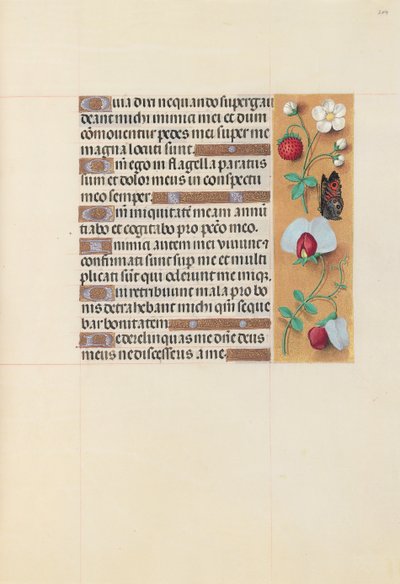 Quia dixi nequando supergau
deant michi inimici mei et dum
cōmoventur pedes mei super me
magna locuti sunt.
Qm̄ ego in flagella paratus
sum et dolor meus in conspectu
meo semper.
Qm̄ iniquitatē meam annū
tiabo et cogitabo pro pctō meo.
Inimici autem mei vivunt et
confirmati sunt sup me et multi
plicati sūt qui oderunt me iniq.
Qui retribuunt mala pro bo
nis detrahebant michi qm̄ seque
bar bonitatem
Ne derelinquas me dn̄e deus
meus ne discesseris a me.